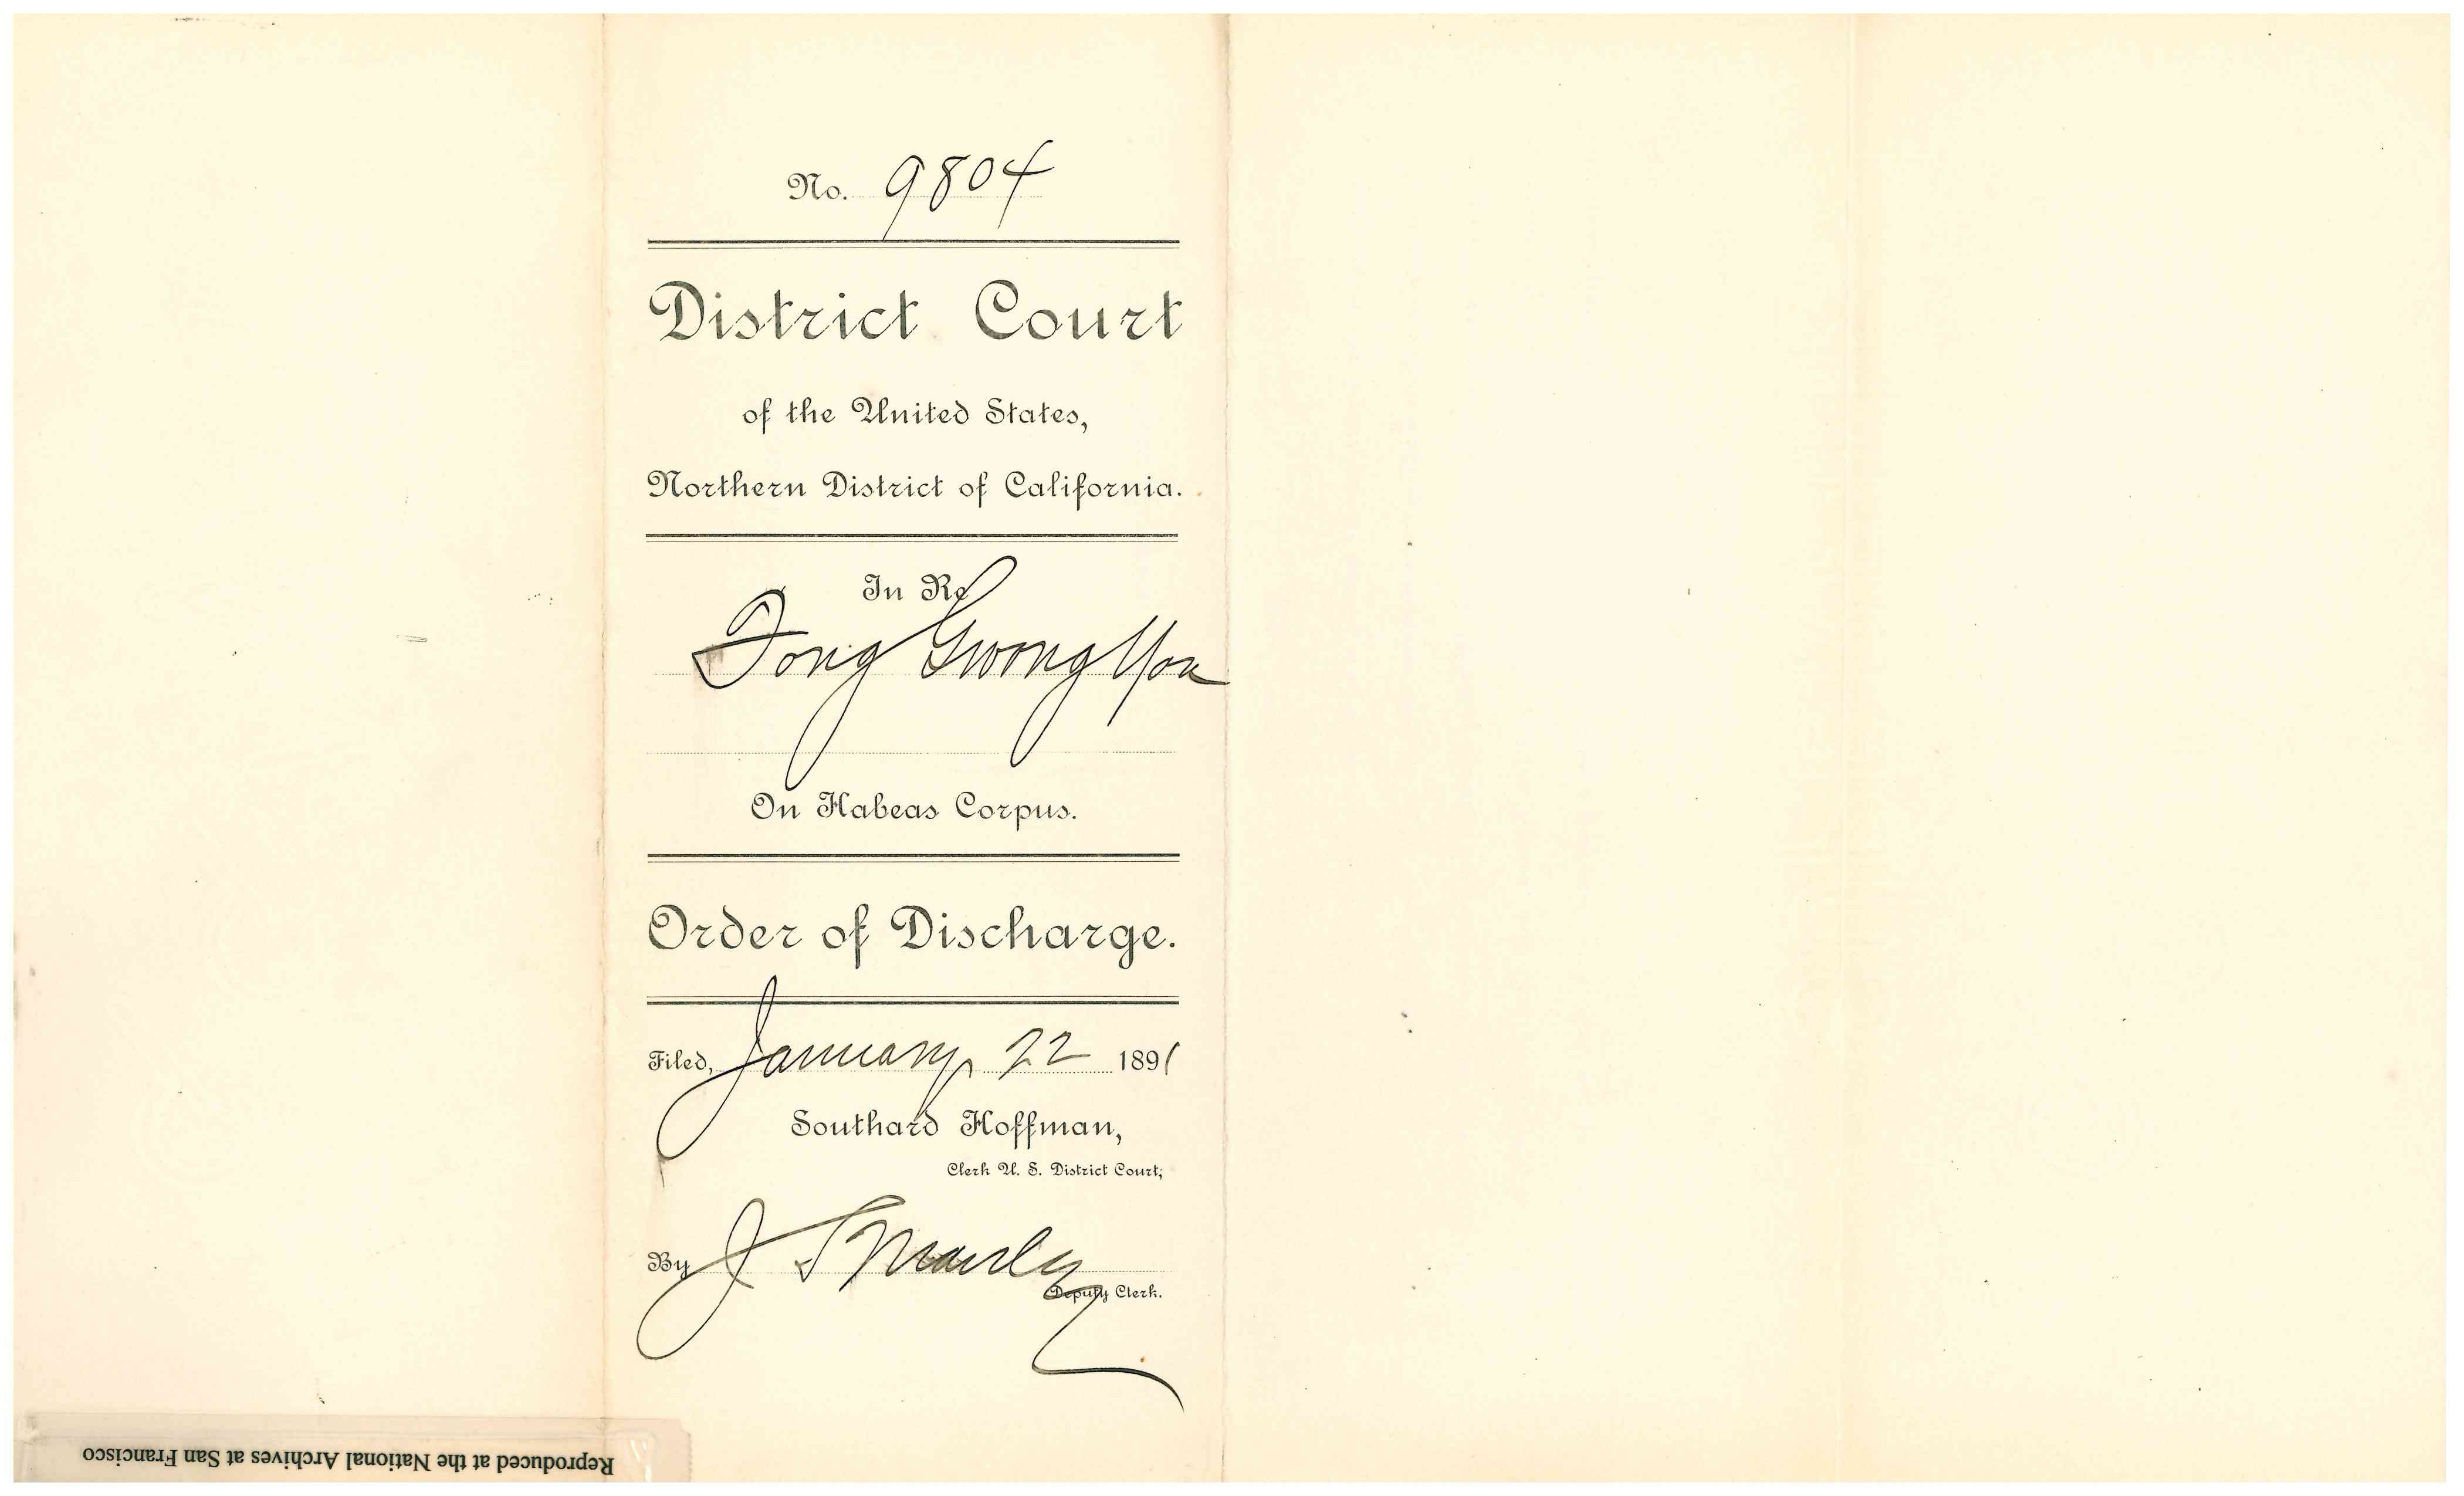 No. 9804
District Court
of the United States,
Northern District of California.
In Re
Fong Gwong You
On Habeas Corpus.
Order of Discharge.
Filed, January 22 1891
Southard Hoffman,
Clerk U. S. District Court,
By J S Manley
Deputy Clerk.
Reproduced at the National Archives at San Francisco